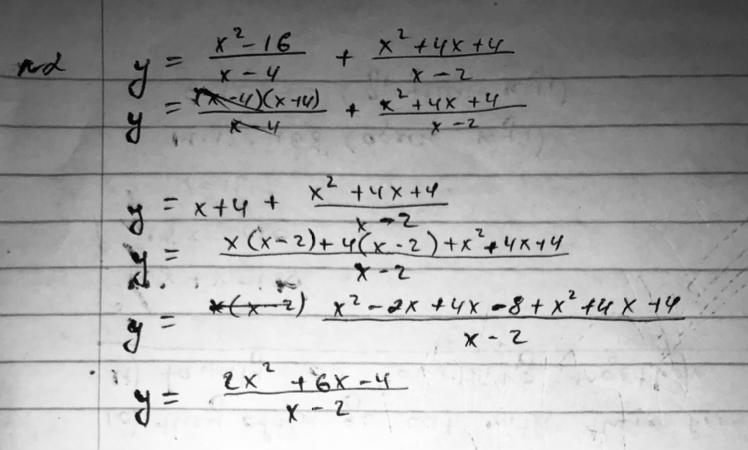 n2 y = (x² - 16)/(x - 4) + (x² + 4x + 4)/(x - 2)
y = (x-4)(x+4)/(x-4) + (x² + 4x + 4)/(x - 2)
y = x+4 + (x² + 4x + 4)/(x - 2)
y = (x(x-2) + 4(x-2) + x² + 4x + 4)/(x - 2)
y = x(x-2) (x² - 2x + 4x - 8 + x² + 4x + 4)/(x - 2)
y = (2x² + 6x - 4)/(x - 2)